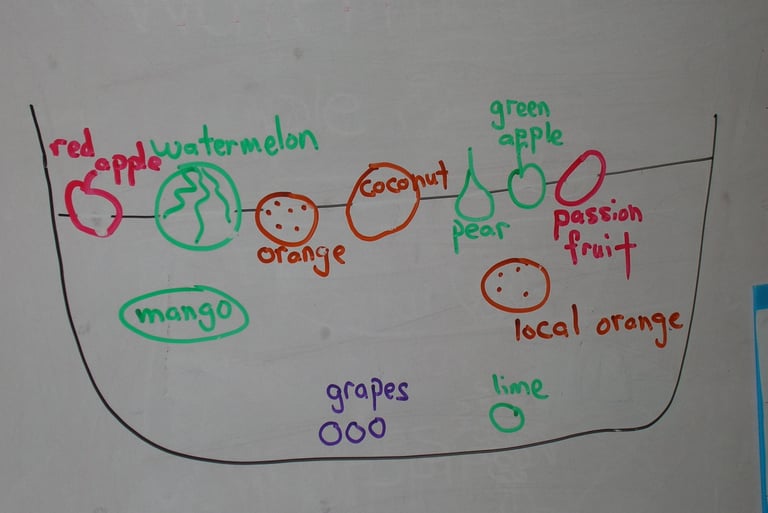 red
apple
watermelon
orange
coconut
pear
green
apple
passion
fruit
mango
local orange
grapes
lime